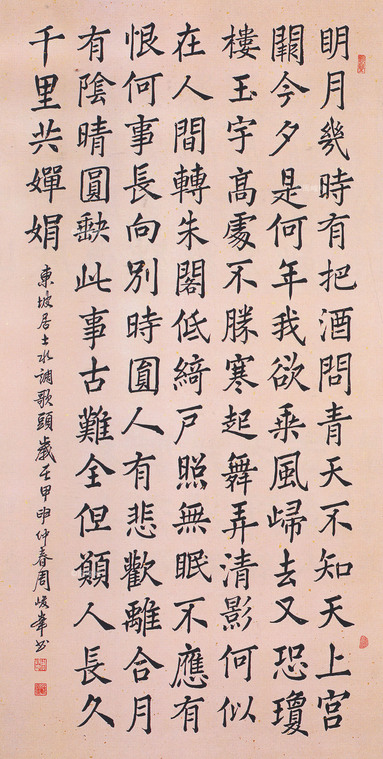 明月幾時有把酒問青天不知天上宮
闕今夕是何年我欲乘風歸去又恐瓊
樓玉宇高處不勝寒起舞弄清影何似
在人間轉朱閣低綺戶照無眠不應有
恨何事長向別時圓人有悲歡離合月
有陰晴圓缺此事古難全但願人長久
千里共嬋娟
東坡居士水調歌頭歲在甲申仲春周